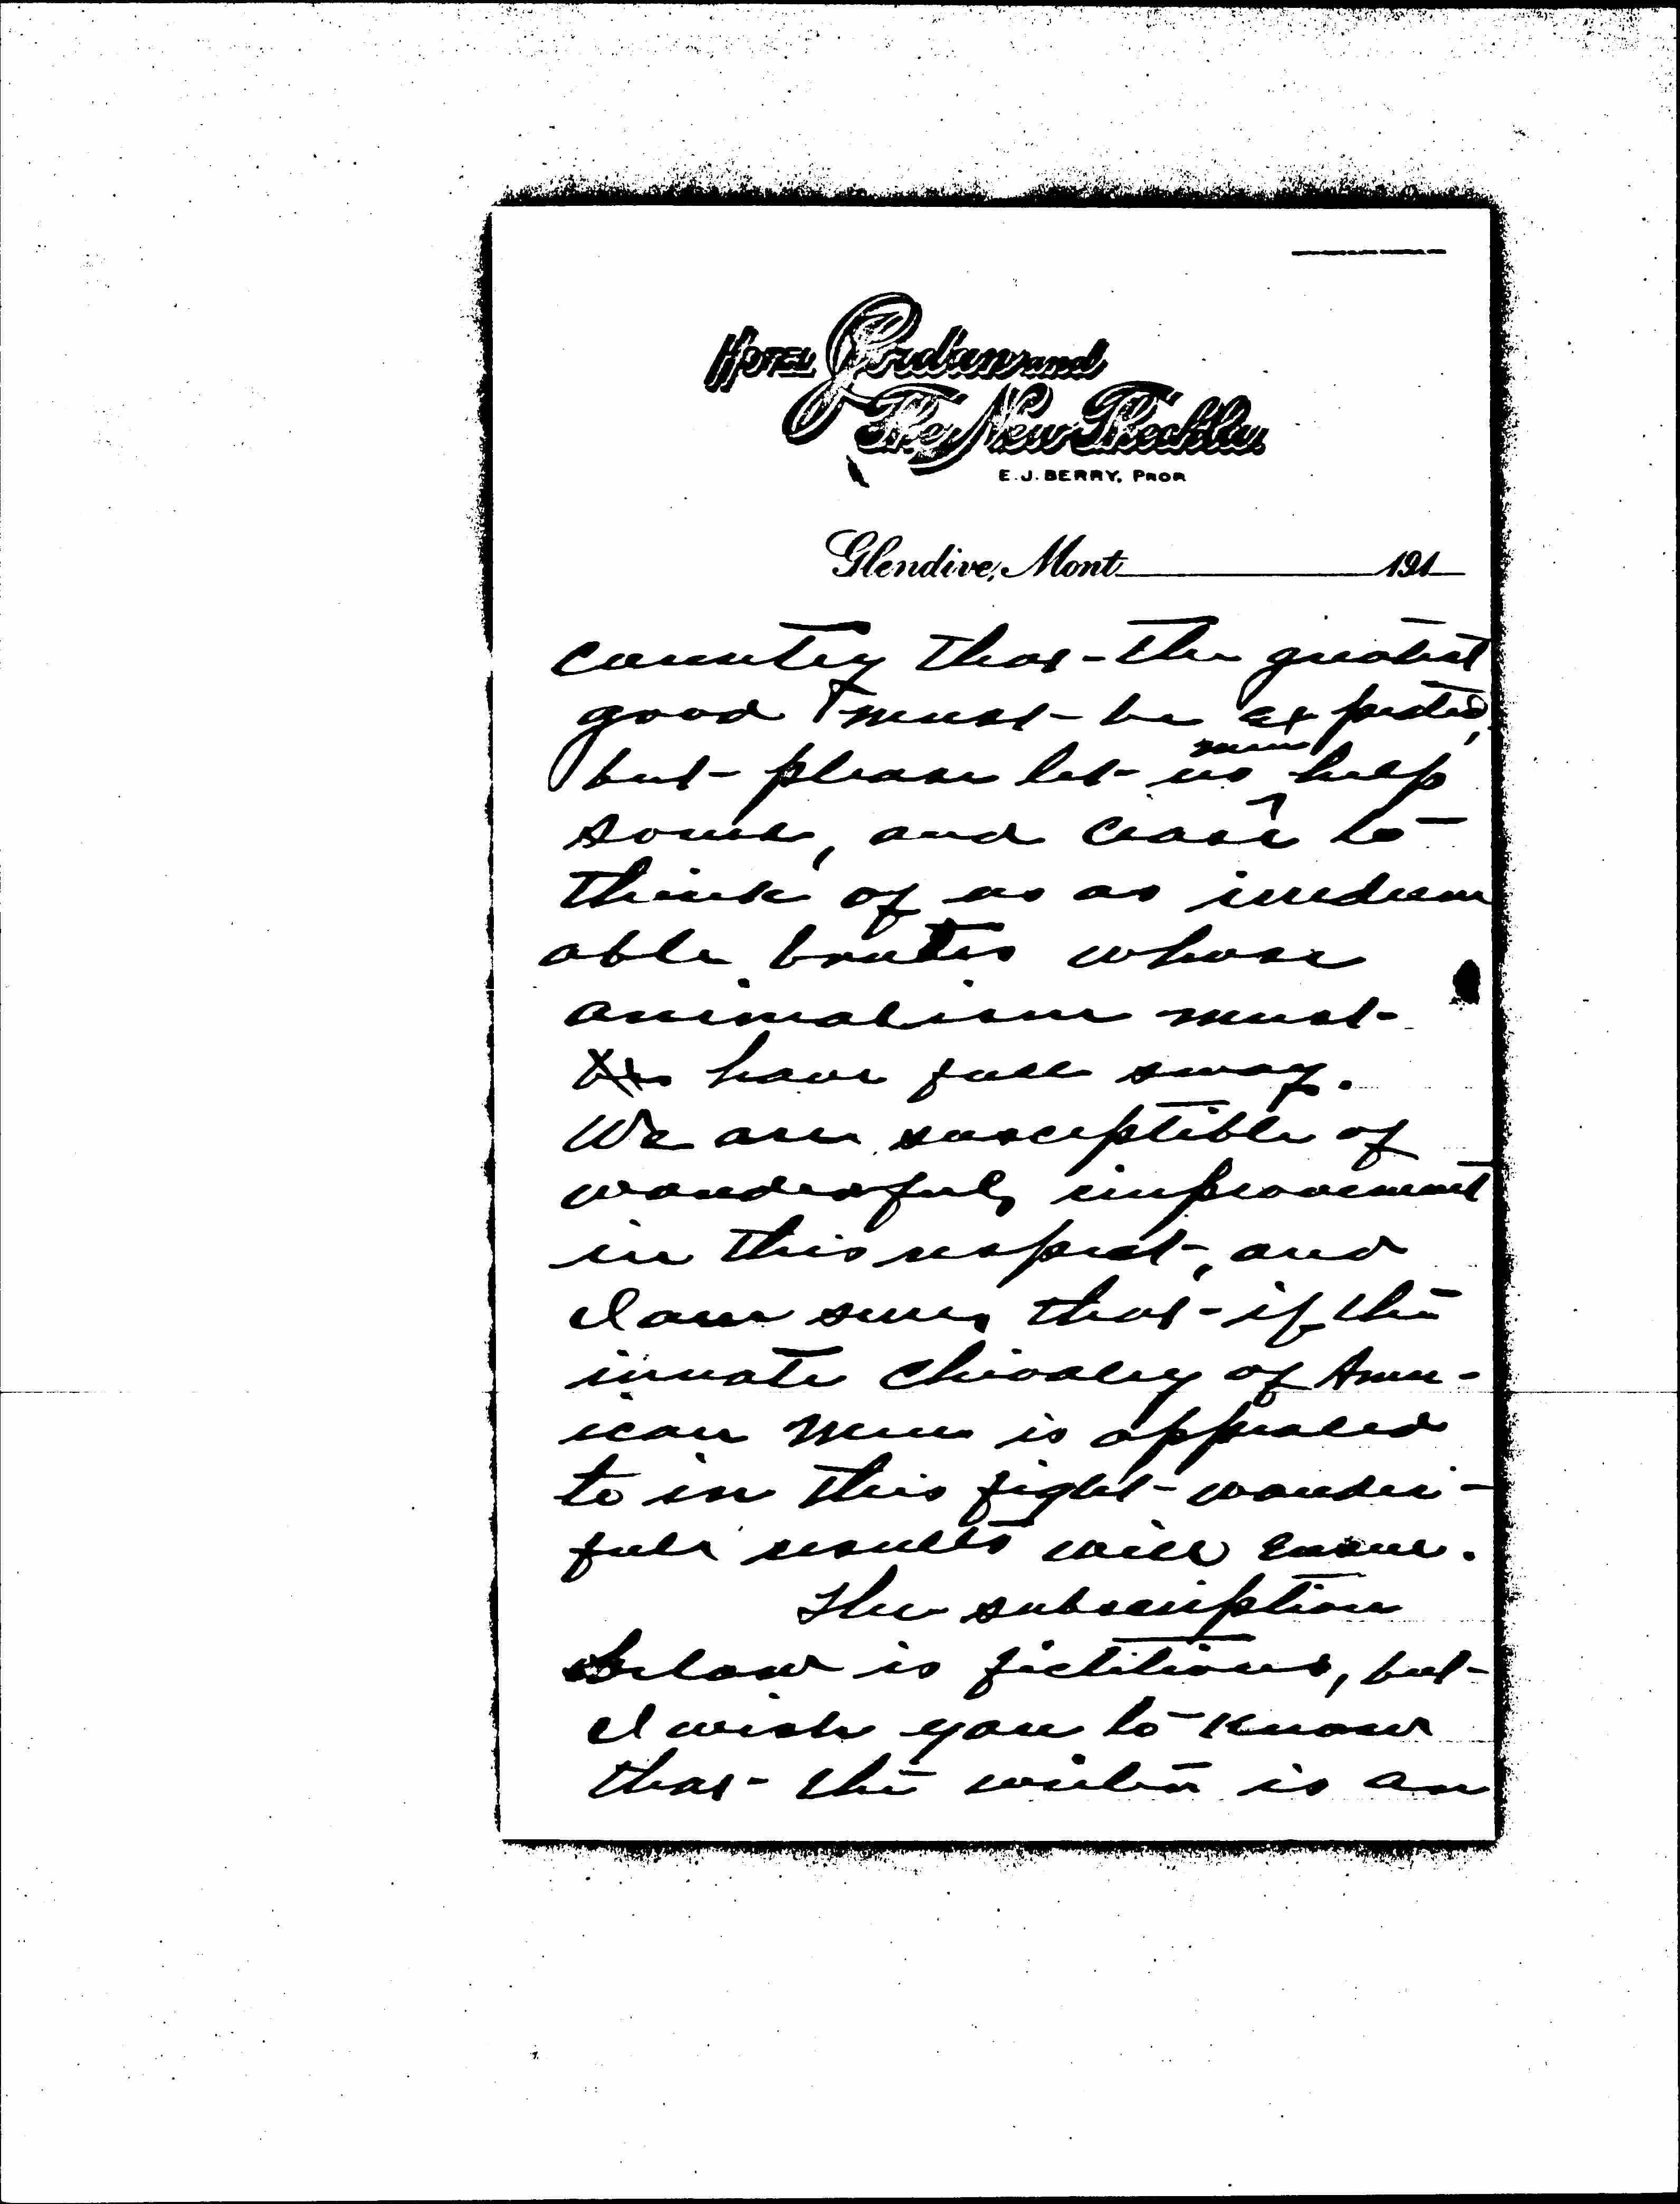 HOTEL Jordan and
The New Thechla
E. J. BERRY, PROP
Glendive, Mont. 191
country that the greatest
good must be expected,
men
but please let us help
some, and cease to
think of us as irredeem
able brutes whose
animalism must
have full sway.
We are susceptible of
wonderful improvement
in this respect, and
I am sure that if the
innate chivalry of Amer-
ican men is appealed
to in this fight wonder-
full results will ensue.
The subscription
below is fictitious, but
I wish you to know
that the writer is an